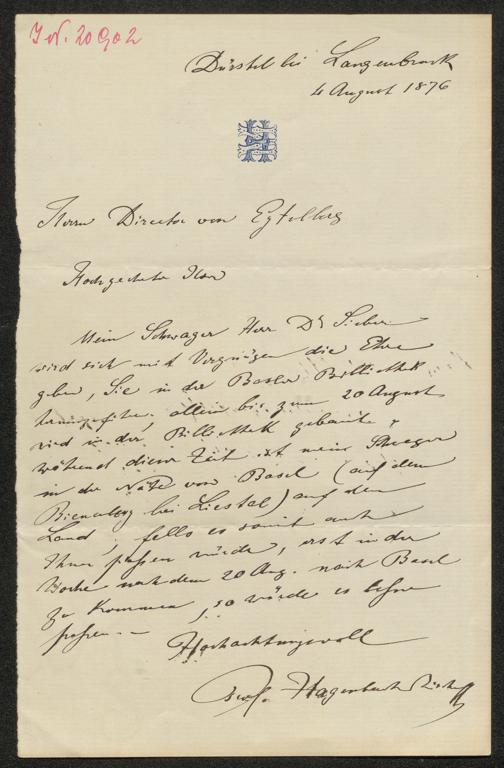 J.N. 20902
Dürstel bei Langenbruck
4 August 1876
H
Herrn Director von Eytelberg
Hochgeehrter Herr
Mein Schwager Herr Dr Sieber
wird sich mit Vergnügen die Ehre
geben, Sie in der Basler Bibliothek
herumzuführen, allein bis zum 20 August
wird in der Bibliothek gebaut &
während dieser Zeit ist mein Schwager
in der Nähe von Basel (auf dem
Bienenberg bei Liestal) auf dem
Land; falls es somit auch
Ihnen passen würde, erst in der
Woche nach dem 20 Aug. nach Basel
zu kommen, so würde es besser
passen. –
Hochachtungsvoll
Prof. Hagenbach-Bischoff